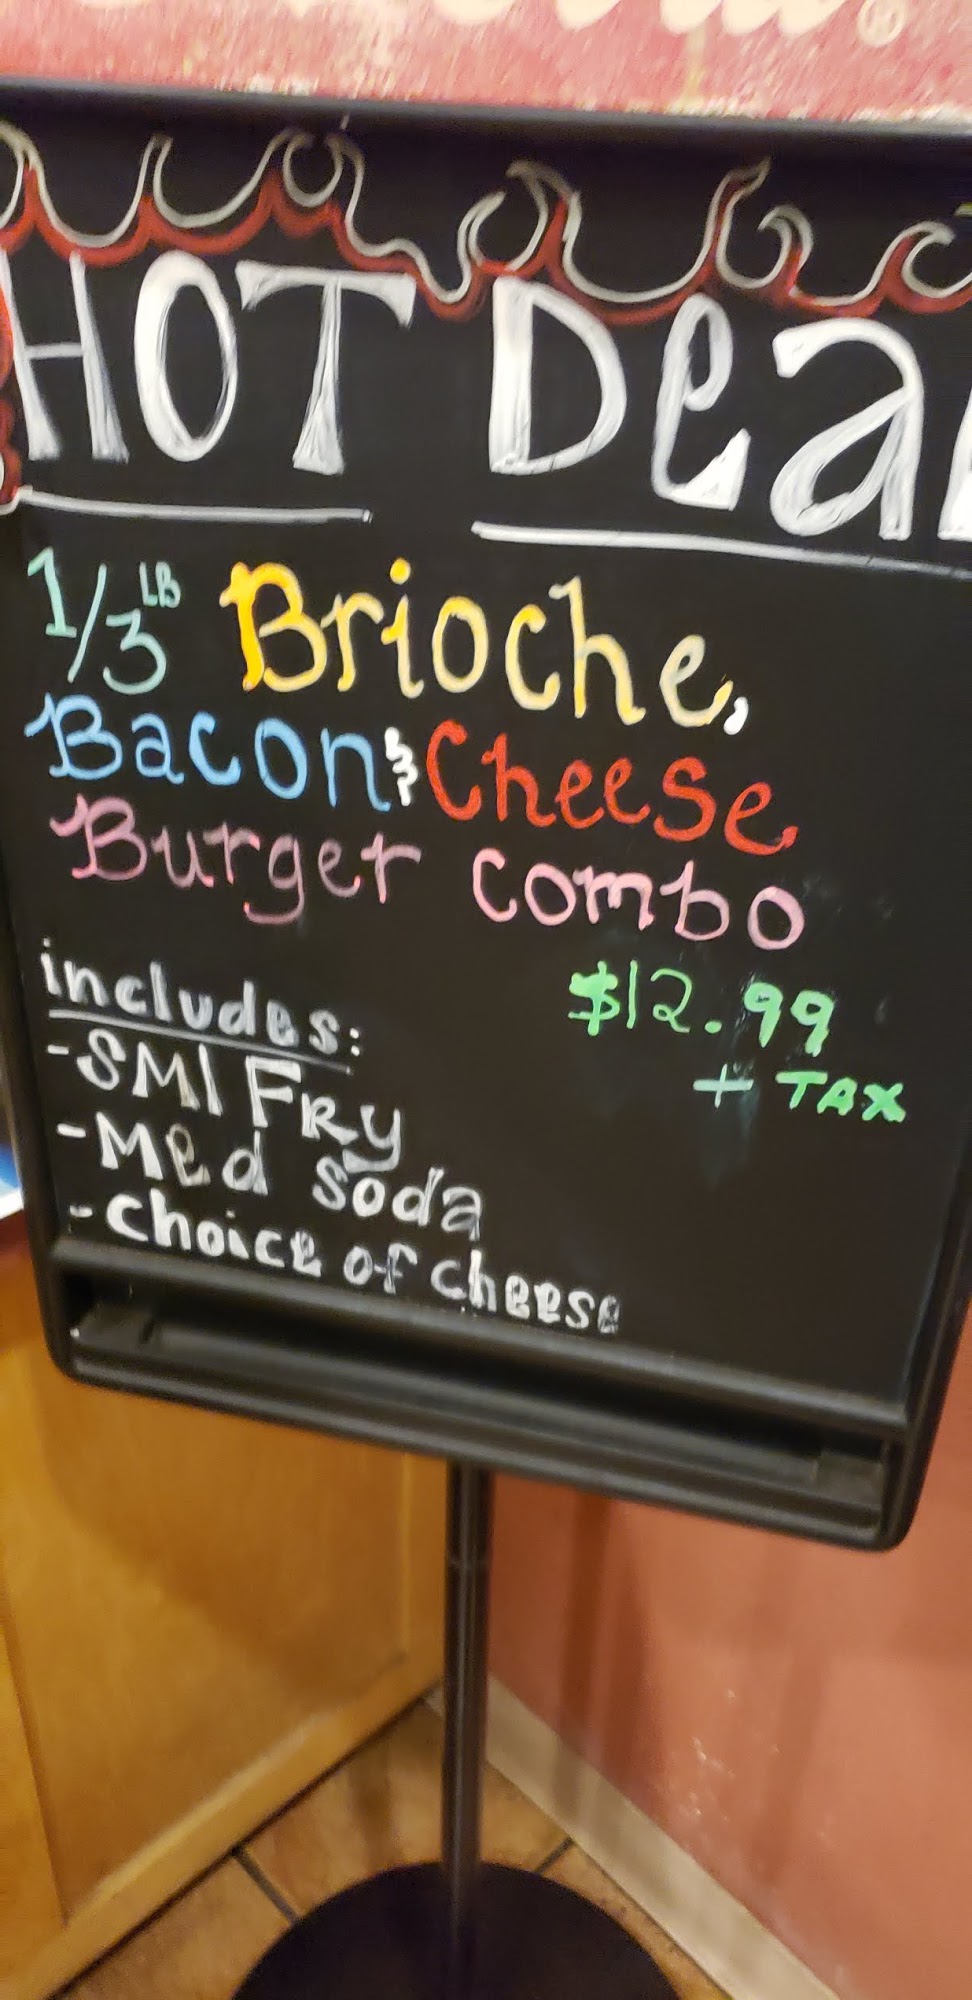 ®
HOT Deal
1/3 LB Brioche,
Bacon & Cheese
Burger Combo
$12.99
+ TAX
includes:
-SMl FRy
-Med Soda
-Choice of Cheese